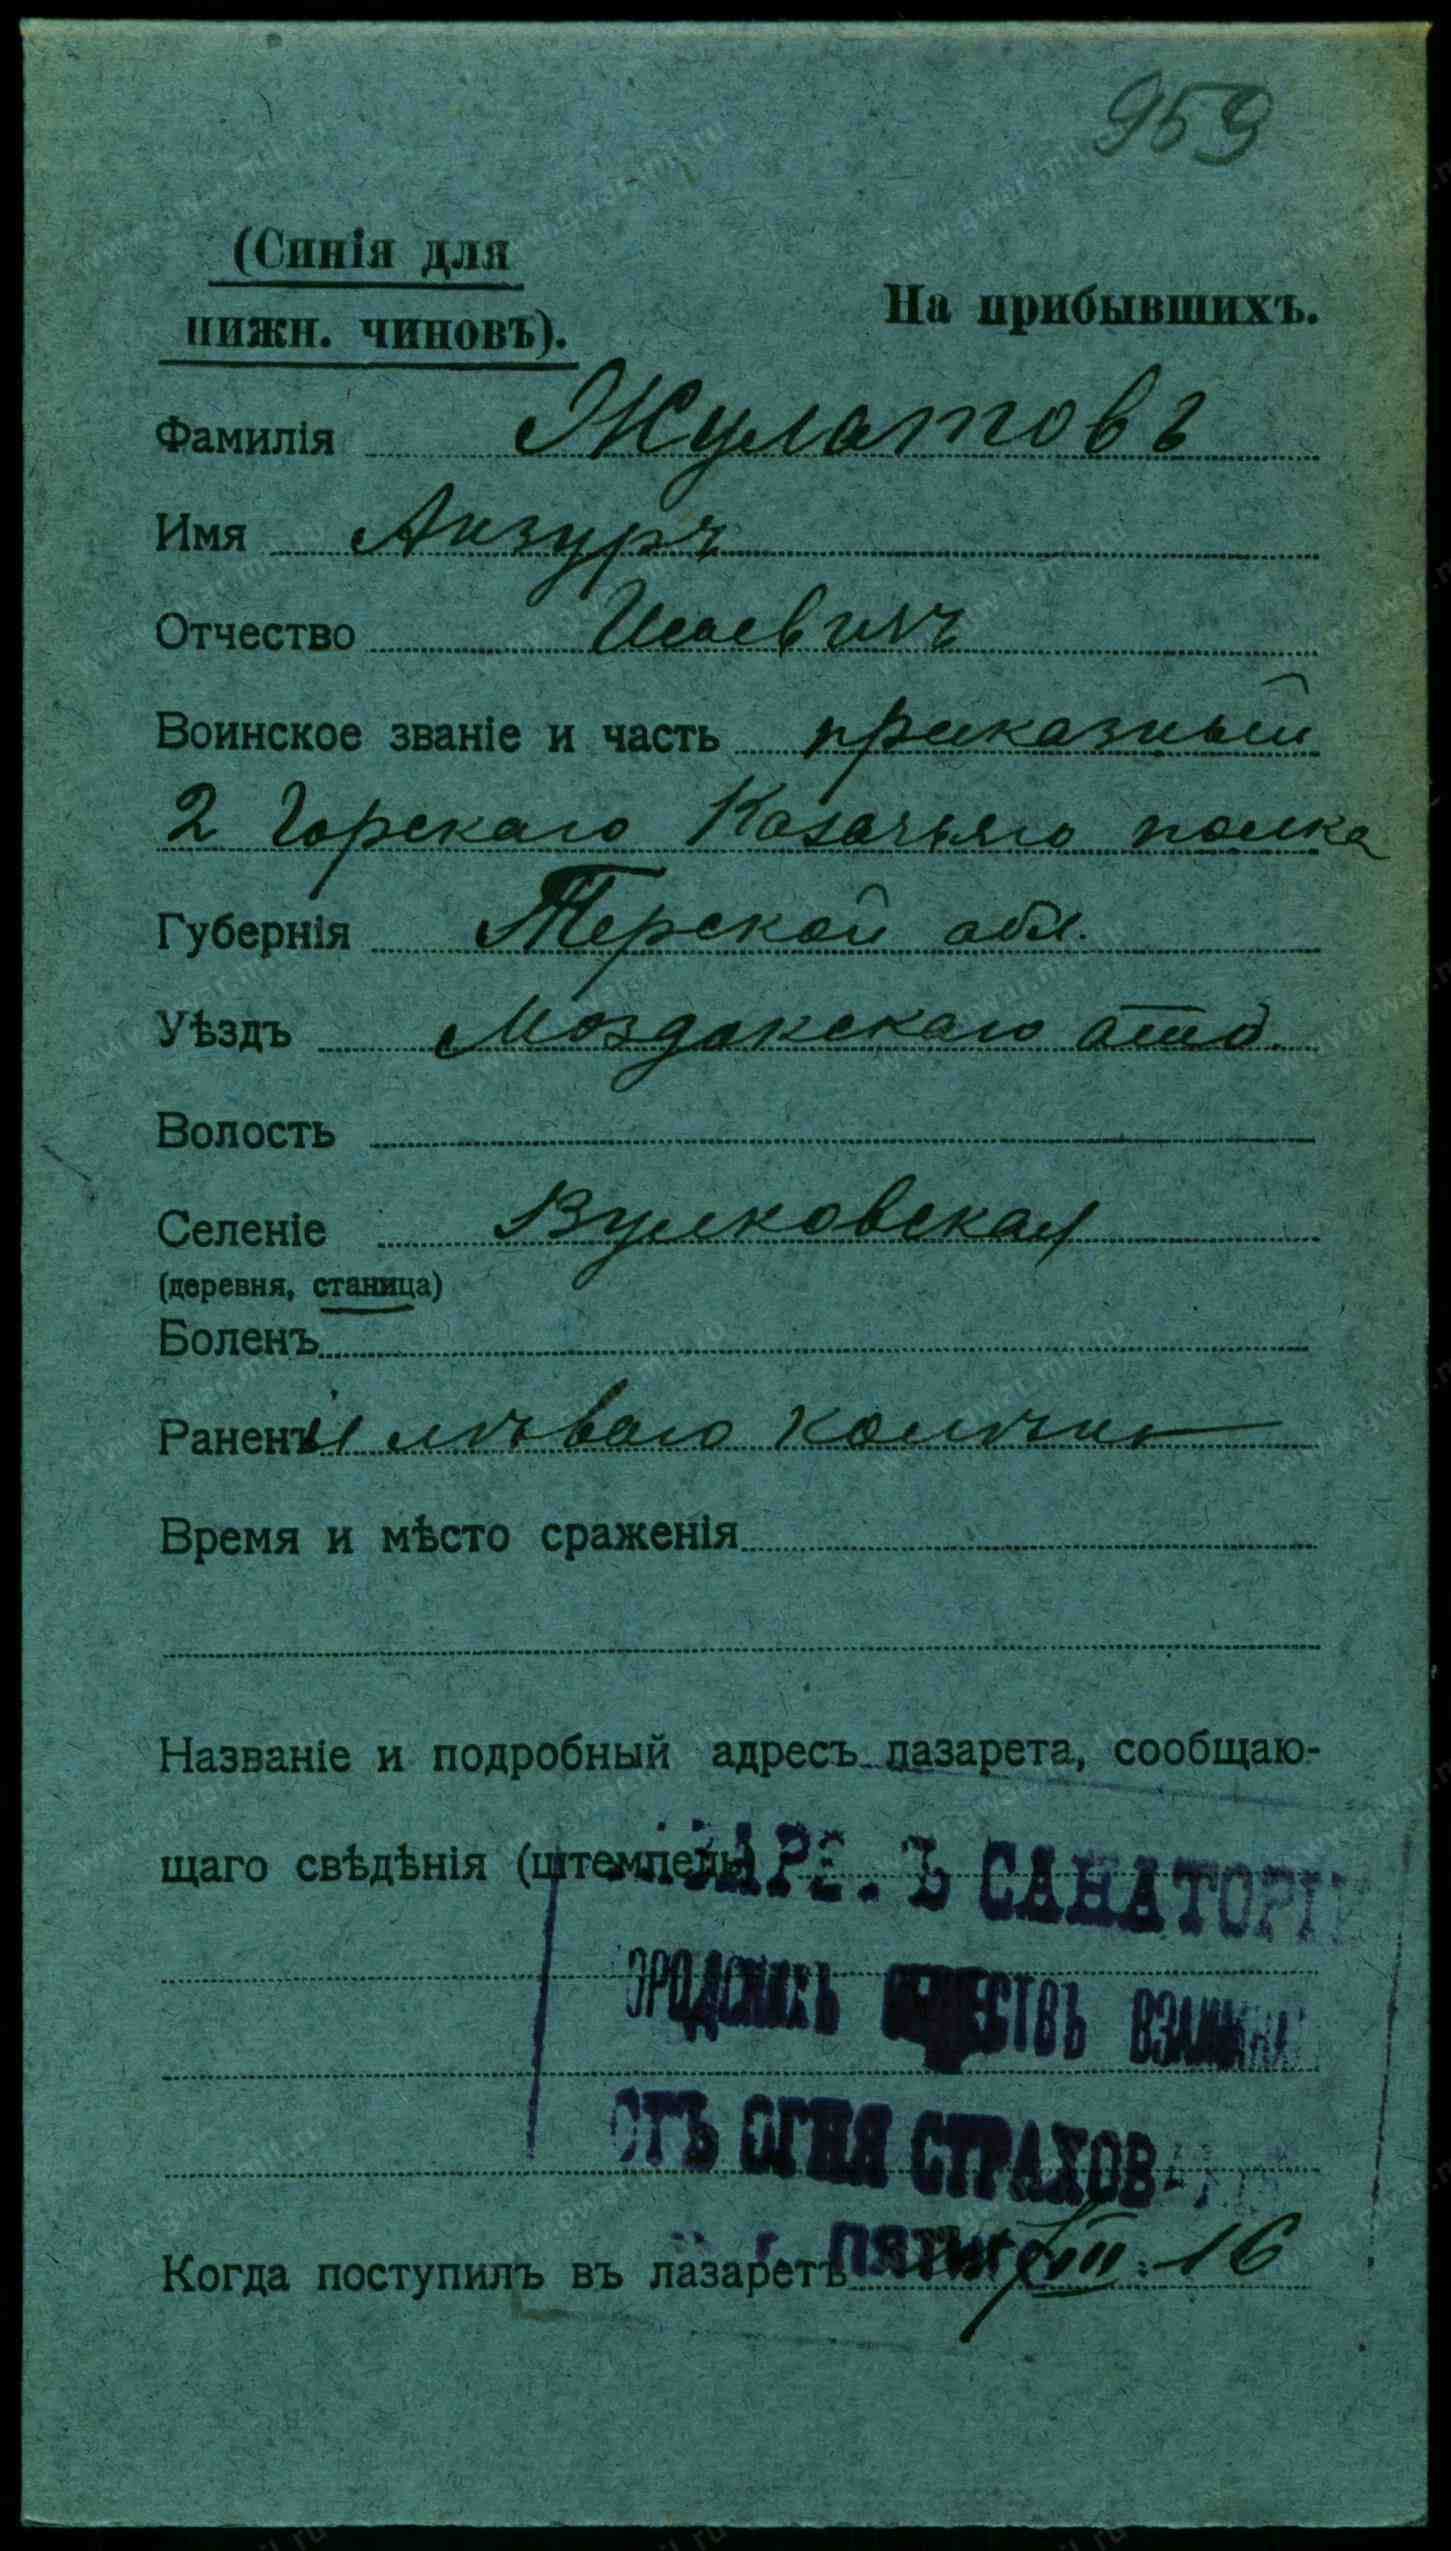 959
(Синія для
нижн. чиновъ).
На прибывшихъ.
Фамилія Жулатовъ
Имя Анзуръ
Отчество Исаевичъ
Воинское званіе и часть приказный
2 Горскаго Казачьяго полка
Губернія Терской обл.
Уѣздъ Моздокскаго отд.
Волость
Селеніе
(деревня, станица)
Боленъ
Раненъ лѣваго колѣна
Время и мѣсто сраженія
Названіе и подробный адресъ лазарета, сообщаю-
щаго свѣдѣнія (штемпель)
САНАТОРІ
ОБЩЕСТВЪ
ОТЪ ОГНЯ СТРАХОВ
Когда поступилъ въ лазаретъ VIII 16